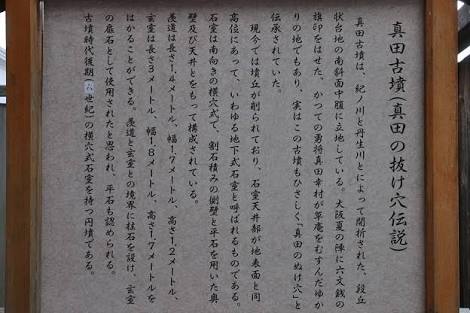 真田古墳(真田の抜け穴伝説)
真田古墳は、紀ノ川と丹生川とによって開折された、段丘
状台地の南斜面中腹に立地している。大阪夏の陣に六文銭の
旗印をはせた、かつての勇将真田幸村が草庵をむすんだゆか
りの地でもあり、実はこの古墳もひさしく「真田のぬけ穴」と
伝承されていた。
現今では墳丘が削られており、石室天井部が地表面と同
高位にあって、いわゆる地下式石室と呼ばれるものである。
石室は南向きの横穴式で、割石積みの側壁と平石を用いた奥
壁及び天井とをもって構成されている。
羨道は長さ1.4メートル、幅1.7メートル、高さ1.2メートル、
玄室は長さ3メートル、幅1.8メートル、高さ1.7メートルを
はかることができる。羨道と玄室との境界に柱石を設け、玄室
の底石として使用されたと思われ、平石も認められる。
古墳時代後期(六世紀)の横穴式石室を持つ円墳である。